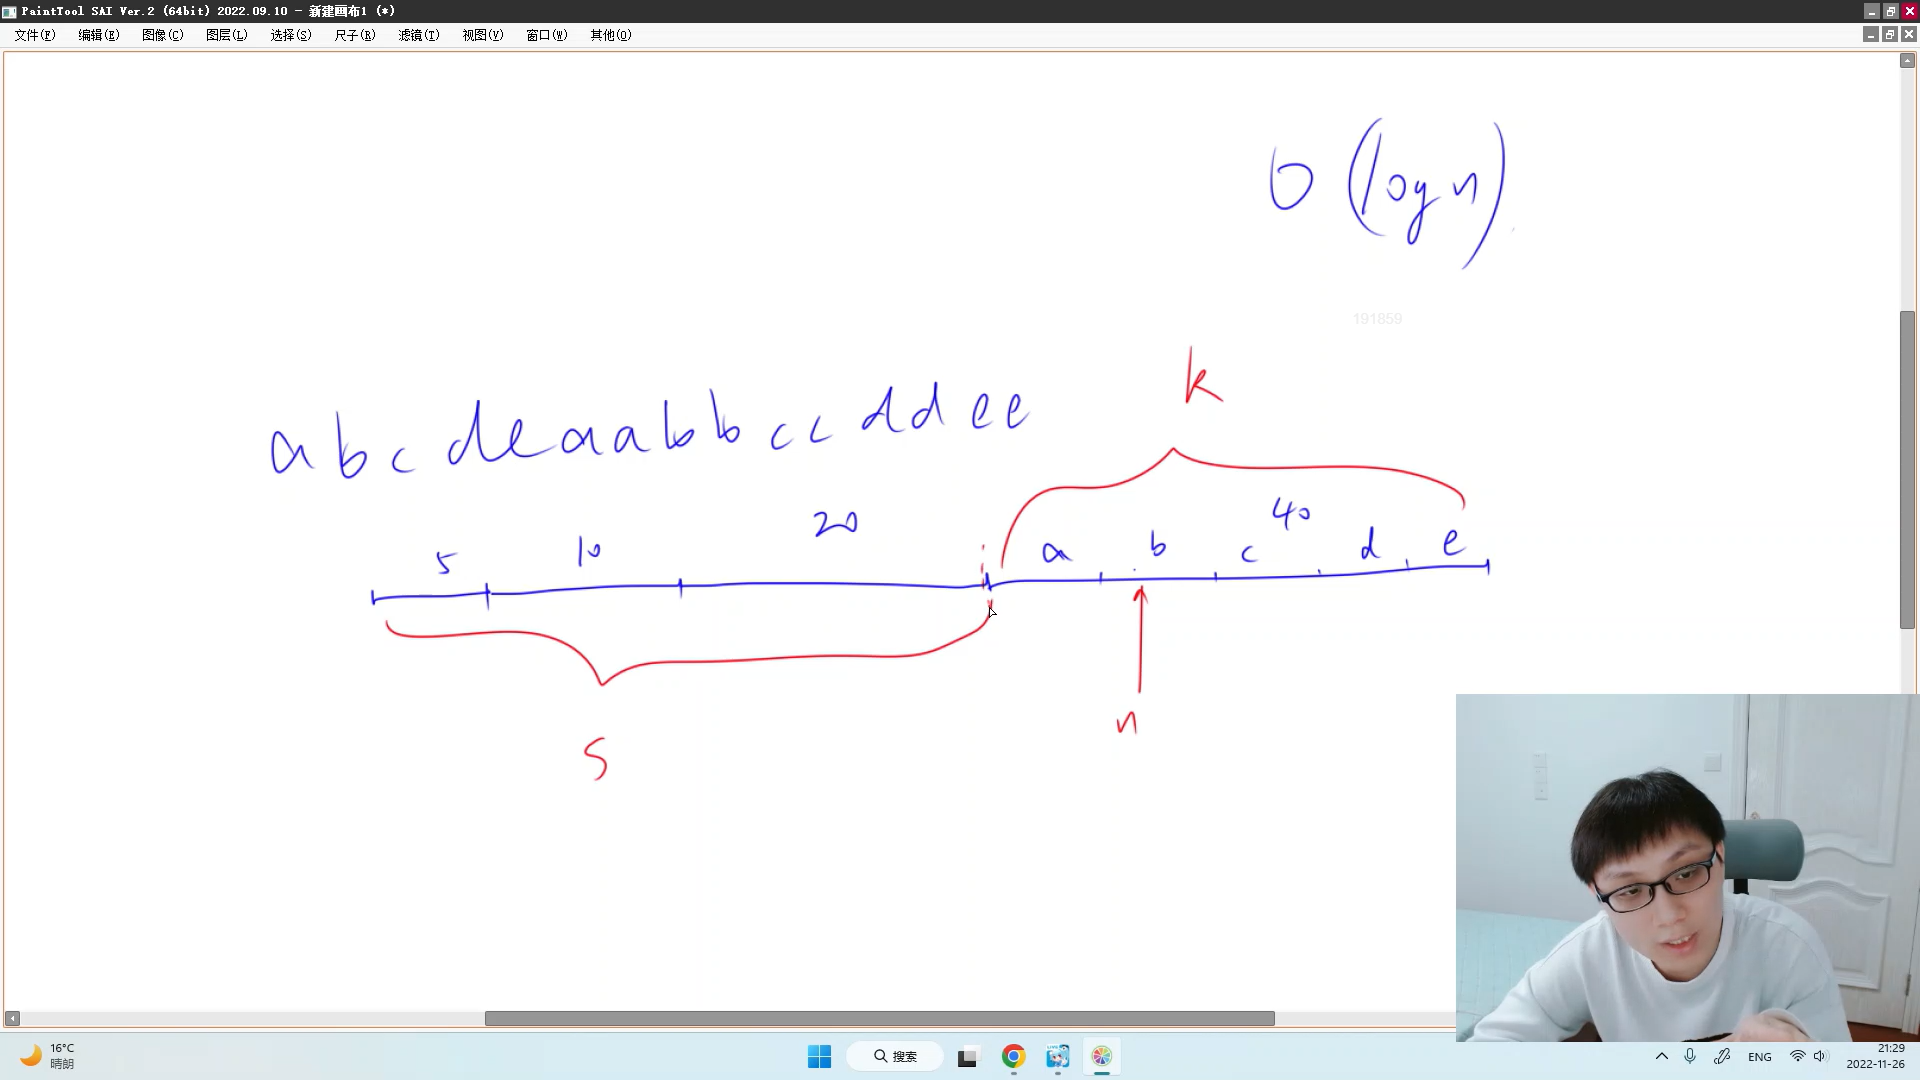 PaintTool SAI Ver.2 (64bit) 2022.09.10 - 新建画布1 (*)
文件(F) 编辑(E) 图像(C) 图层(L) 选择(S) 尺子(R) 滤镜(T) 视图(V) 窗口(W) 其他(O)
O(logn)
191859
k
abcdeaabbccddee
5 10 20 40
a b c d e
n
S
16°C
晴朗
搜索
ENG
21:29
2022-11-26